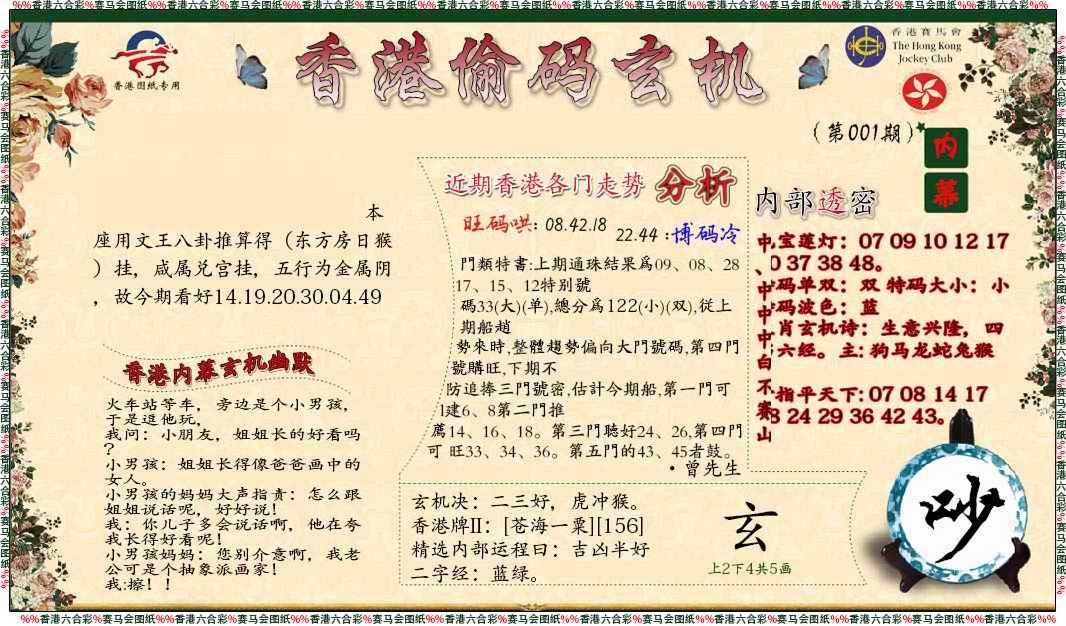 %%香港六合彩%赛马会图纸%%香港六合彩%赛马会图纸%%香港六合彩%赛马会图纸%%香港六合彩%赛马会图纸%%香港六合彩%赛马会图纸%%香港六合彩%%
香港图纸专用
香港偷码玄机
香港賽馬會
The Hong Kong
Jockey Club
(第001期)
内
幕
本
座用文王八卦推算得（东方房日猴
）挂，咸属兑宫挂，五行为金属阴
，故今期看好14.19.20.30.04.49
香港内幕玄机幽默
火车站等车，旁边是个小男孩，
于是逗他玩，
我问：小朋友，姐姐长的好看吗
？
小男孩：姐姐长得像爸爸画中的
女人。
小男孩的妈妈大声指责：怎么跟
姐姐说话呢，好好说！
我：你儿子多会说话啊，他在夸
我长得好看呢！
小男孩妈妈：您别介意啊，我老
公可是个抽象派画家！
我:擦！！
近期香港各门走势 分析
旺码哄: 08.42.18
22.44 :博码冷
門類特書:上期通珠結果爲09、08、28
17、15、12特别號
碼33(大)(单),總分爲122(小)(双),從上
期船趙
勢來時,整體趨勢偏向大門號碼,第四門
號購旺,下期不
防追捧三門號密,估計今期船,第一門可
建6、8第二門推
薦14、16、18。第三門聴好24、26,第四門
可 旺33、34、36。第五門的43、45者鼓。
·曾先生
玄机决：二三好，虎冲猴。
香港牌II：[苍海一粟][156]
精选内部运程曰：吉凶半好
二字经：蓝绿。
玄
上2下4共5画
内部透密
宝莲灯：07 09 10 12 17
37 38 48。
码单双：双 特码大小：小
码波色：蓝
肖玄机诗：生意兴隆，四
六经。主: 狗马龙蛇兔猴
指平天下: 07 08 14 17
24 29 36 42 43。
中
、
中
中
白
不
赛
山
吵
%%香港六合彩%赛马会图纸%%香港六合彩%赛马会图纸%%香港六合彩%赛马会图纸%%香港六合彩%赛马会图纸%%香港六合彩%赛马会图纸%%香港六合彩%%